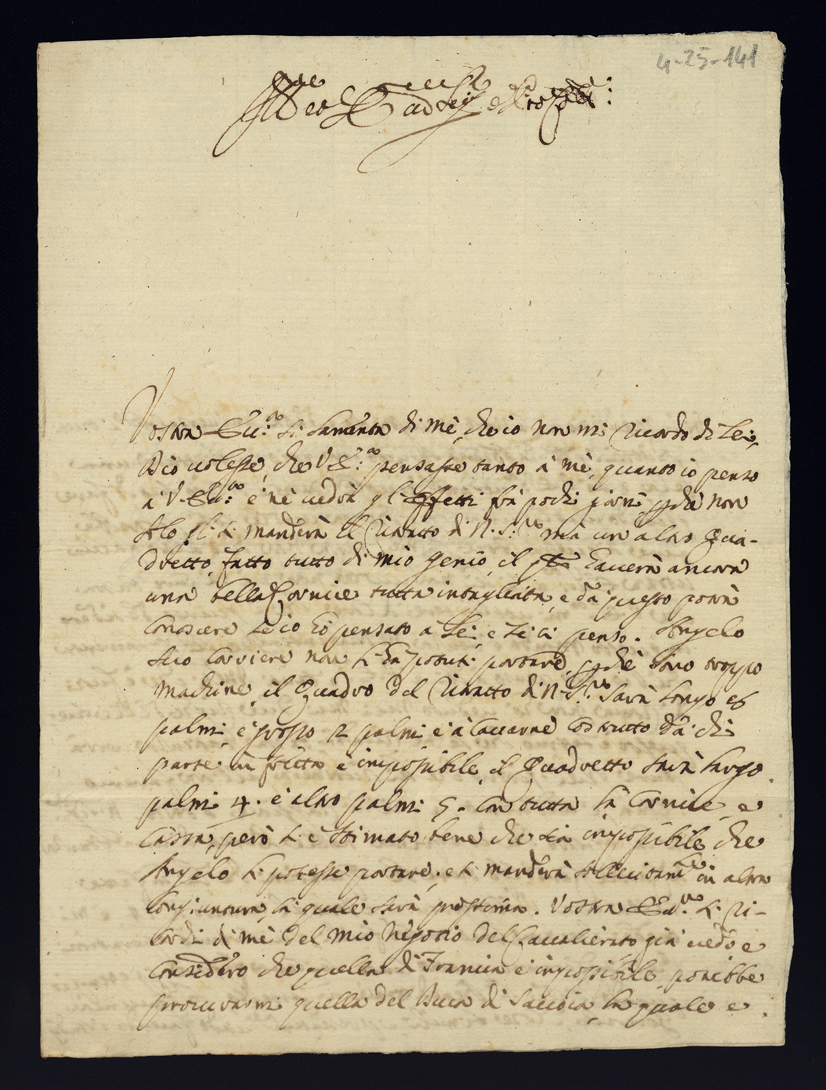 4-25-141
Vostra Ecc.a si lamenta di mè, che io non mi ricordo di Lei,
Dio volesse, che V. E.: pensasse tanto à mè, quanto io penso
à V. Ecc.a e nè vedrà gl'effetti frà pochi giorni perche non
solo gli si manderà il Ritratto di N. S.re mà un altro Qua-
dretto fatto tutto di mio genio, il haverà ancora
una bella Cornice tutta intagliata, e da questo potrà
conoscere se io hò pensato a Lei, e se ci penso. Angelo
suo Corriere non li hà potuti portare, perche sono troppo
machine, il Quadro del Ritratto di N. S.re sarà longo
palmi e grosso 2 palmi e à cacciarne costrutto da chi
parte in fretta è impossibile, il Quadretto sarà largo
palmi 4. e alto palmi 5. con tutta la Cornice, e
Cassa, però si è stimato bene che sia impossibile, che
Angelo li potesse portare, e si manderà sollecitam.te in altra
congiuntura, la quale sarà prossima. Vostra Ecc.a si ri-
cordi di mè del mio negotio del Cavalierato già vedo e
considero che quella di Francia è impossibile, potrebbe
procurarmi quella del Duca di Savoia, la quale e